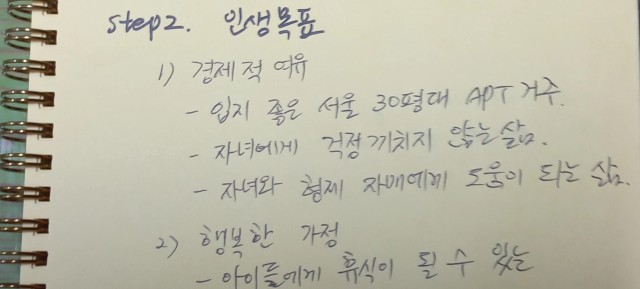 step2. 인생목표
1) 경제적 여유
- 입지 좋은 서울 30평대 APT 거주.
- 자녀에게 걱정끼치지 않는 삶.
- 자녀와 형제 자매에게 도움이 되는 삶.
2) 행복한 가정
- 아이들에게 휴식이 될 수 있는